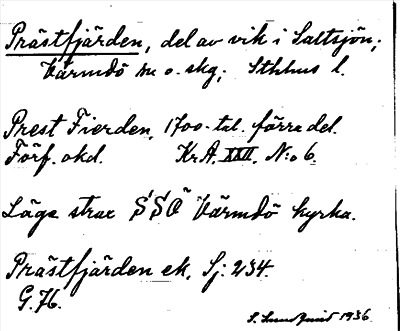 Prästfjärden, del av vik i Saltsjön;
Värmdö sn o. skg; Sthlms l.
Prest Fierden, 1700-tal. förra del.
Förf. okd. Kr.A. XXII. N:o 6.
Läge strax S'S'O" Värmdö kyrka.
Prästfjärden ek. Sj. 234.
G. 76.
S. Lundquist 1936.